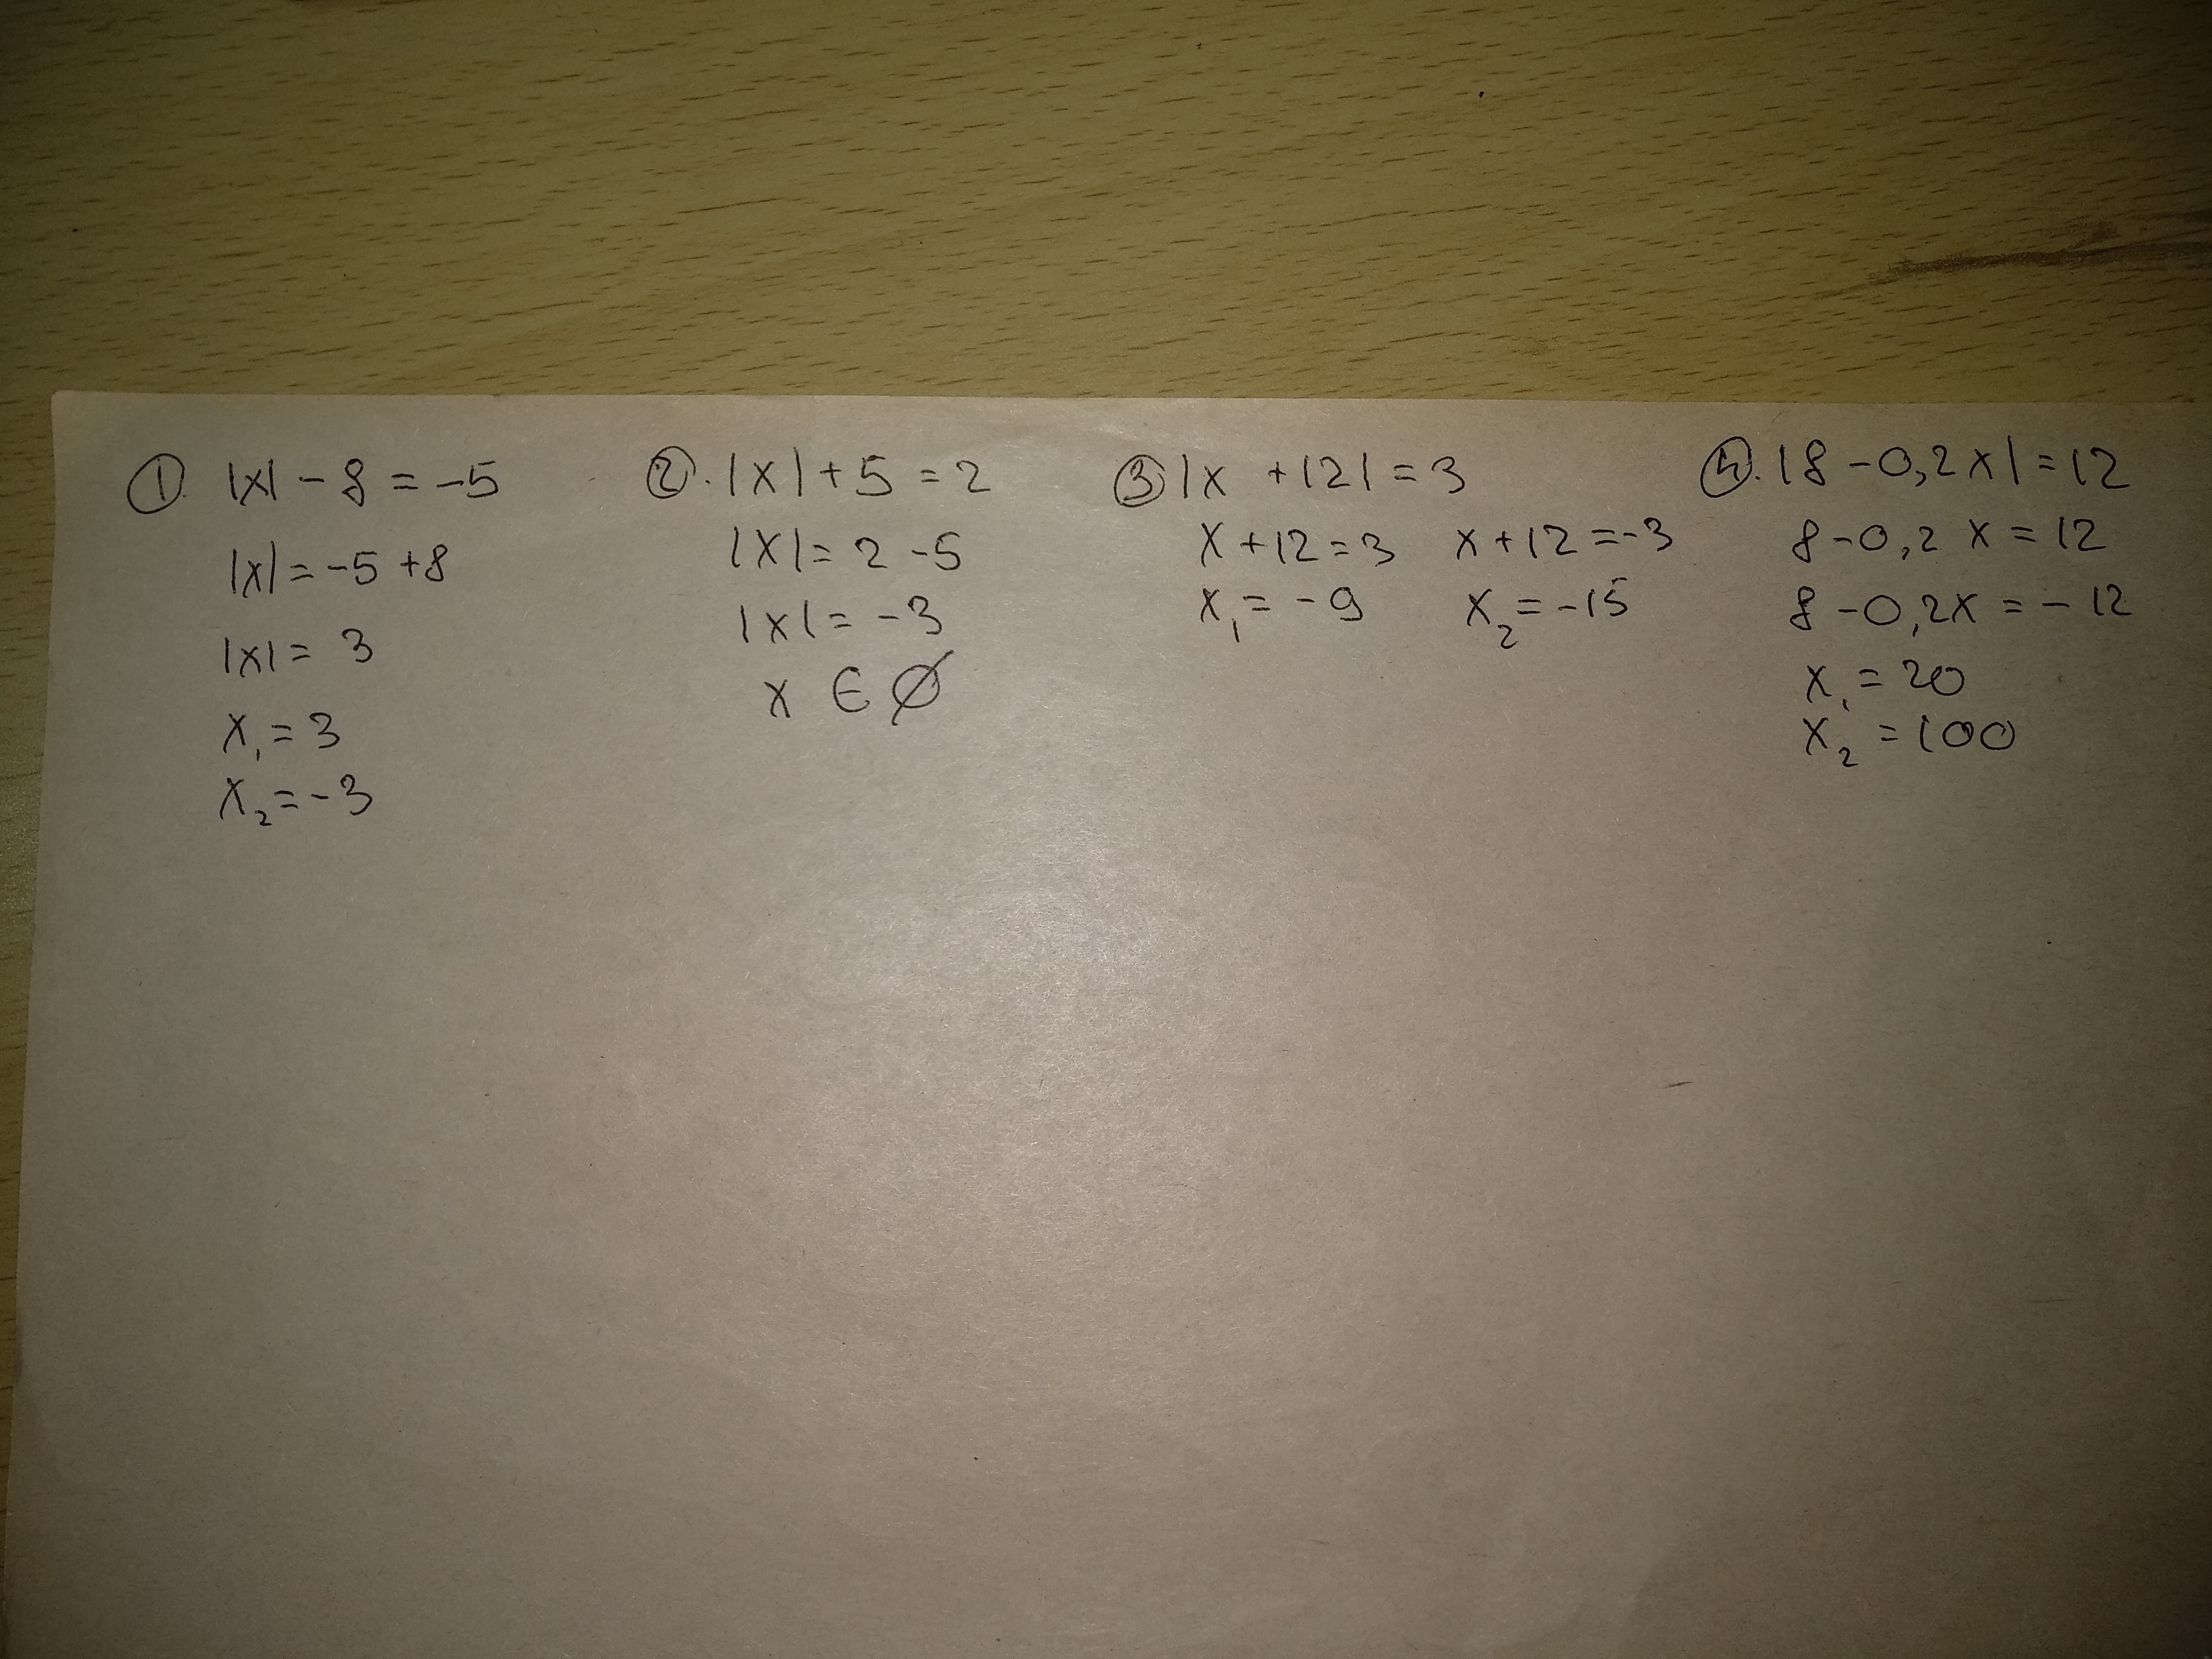 ① |x| - 8 = -5
|x| = -5 + 8
|x| = 3
x₁ = 3
x₂ = -3
②. |x| + 5 = 2
|x| = 2 - 5
|x| = -3
x ∈ ∅
③ |x + 12| = 3
x + 12 = 3 x + 12 = -3
x₁ = -9 x₂ = -15
④. |8 - 0,2x| = 12
8 - 0,2x = 12
8 - 0,2x = -12
x₁ = 20
x₂ = 100